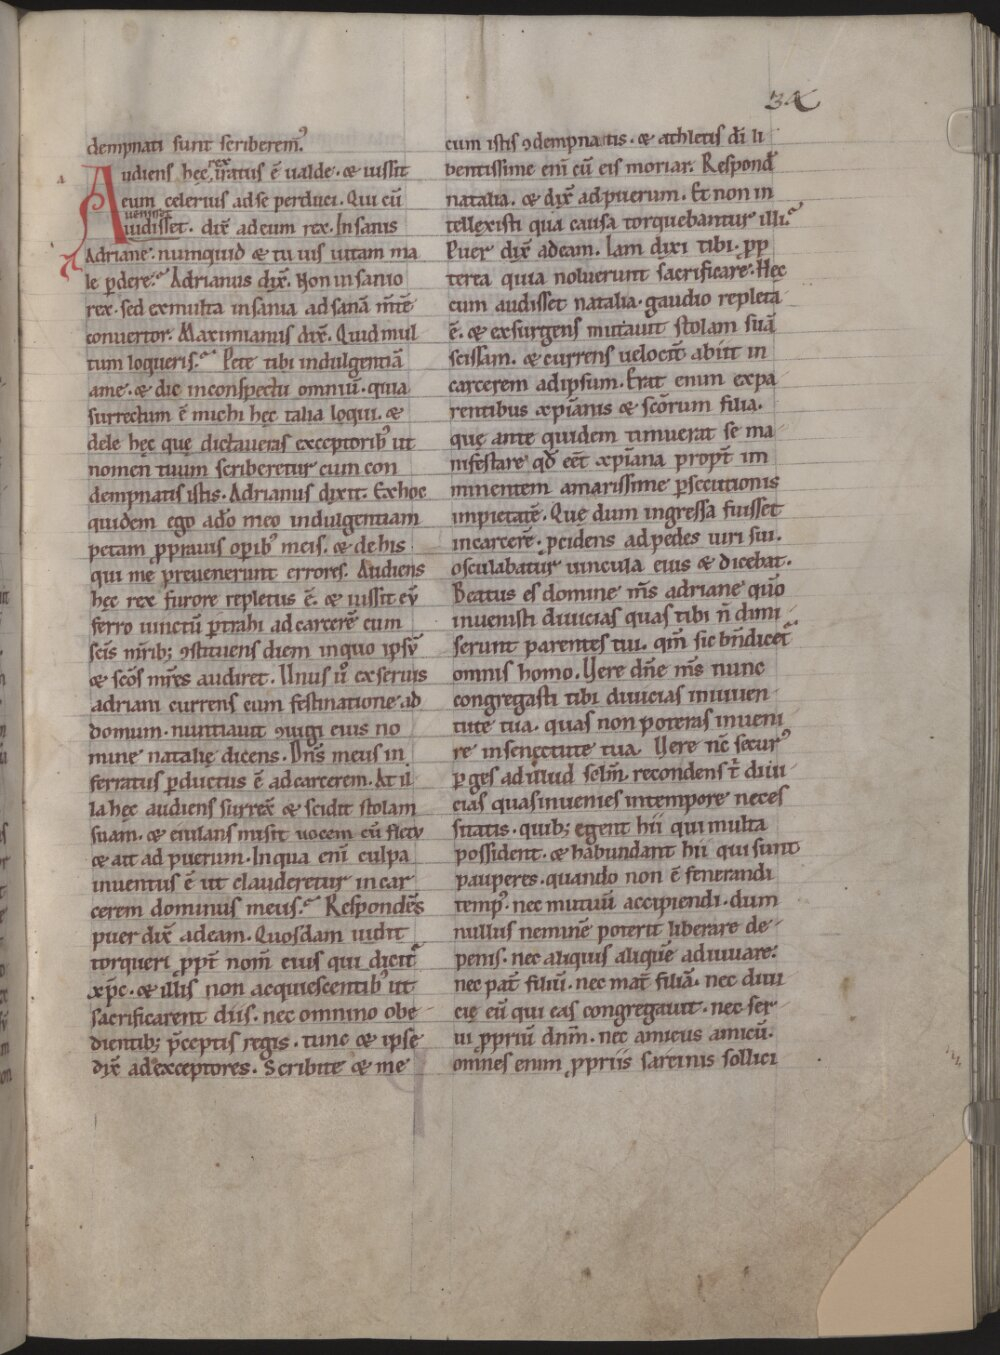 34
dempnati sunt scriberem̓.
Audiens hęc rex iratus ē ualde · & iussit
eum celerius ad se perduci. Qui cū
uenisset
uidisset · dix̄ ad eum rex. Insanis
Adriane· numquid & tu uis uitam ma
le ꝑdere. Adrianus dix̄. Non insanio
rex· sed ex multa insania ad sanā m̄tē
conuertor. Maximianus dix̄. Quid mul
tum loqueris. Pete tibi indulgentiā
a me· & dic in conspectu omniū· quia
surrectum ē michi hęc talia loqui. &
dele hęc quę dictaueras exceptorib᾽ ut
nomen tuum scriberetur cum con
dempnatis istis. Adrianus dixit. Ex hoc
quidem ego a dō meo indulgentiam
petam ꝓ prauis oꝑib᾽ meis. & de his
qui me preuenerunt errores. Audiens
hęc rex furore repletus ē. & iussit eū
ferro uinctū ꝑtrahi ad carcerē cum
sc̄is mr̄ib; ꝯstituens diem in quo ipsū
& sc̄os mr̄es audiret. Unus u̓ ex seruis
adriani currens cum festinatione ad
domum· nuntiauit ꝯiugi eius no
mine natalię dicens. Dn̄s meus in
ferratus ꝑductus ē ad carcerem. At il
la hęc audiens surrex̄ & scidit stolam
suam· & eiulans misit uocem cū fletu
& ait ad puerum. In qua eni̅ culpa
inuentus ē ut clauderetur in car
cerem dominus meus. Respondēs
puer dix̄ ad eam. Quosdam uidit
torqueri ꝓpt̄ nom̄ eius qui dicit᾽
xp̄c· & illis non acquiescentib᾽ ut
sacrificarent diis. nec omnino obe
dientib; p̄ceptis regis. tunc & ipse
dix̄ ad exceptores. Scribite & me
cum istis ꝯdempnatis· & athletis dī li
bentissime eni̅ cū eis moriar. Respond̄
natalia. & dix̄ ad puerum. Et non in
tellexisti qua causa torquebantur illi.
Puer dix̄ ad eam. Iam dixi tibi· ꝓp
terea quia noluerunt sacrificare. Hęc
cum audisset natalia· gaudio repleta
ē. & exsurgens mutauit stolam suā
scissam. & currens uelocit̄ abiit in
carcerem ad ipsum. Erat enim ex pa
rentibus xp̄ianis & sc̄orum filia.
quę ante quidem timuerat se ma
nifestare qd̄ eēt xp̄iana propt̄ im
minentem amarissime ꝑsecutionis
impietatē. Que dum ingressa fuisset
in carcerē· ꝓcidens ad pedes uiri sui.
osculabatur uincula eius & dicebat.
Beatus es domine m̄s adriane quo̅
inuenisti diuicias quas tibi n̄ dimi
serunt parentes tui. qm̄ sic bn̄dicet᾽
omnis homo. Uere dn̄e m̄s nunc
congregasti tibi diuicias in iuuen
tute tua. quas non poteras inueni
re in senectute tua. Uere nc̄ secur᾽
ꝑges ad illud sclm̄. recondens t̄ diui
cias quas inuenies in tempore neces
sitatis. quib; egent hii qui multa
possident. & habundant hii qui sunt
pauperes. quando non ē fenerandi
temp᾽. nec mutuū accipiendi. dum
nullus neminē poterit liberare de
penis. nec aliquis aliquē adiuuare.
nec pat̄ filiū. nec mat̄ filiā. nec diui
cię eū qui eas congregauit. nec ser
ui ꝓpriū dn̄m. nec amicus amicū.
omnes enim ꝓpriis sarcinis sollici